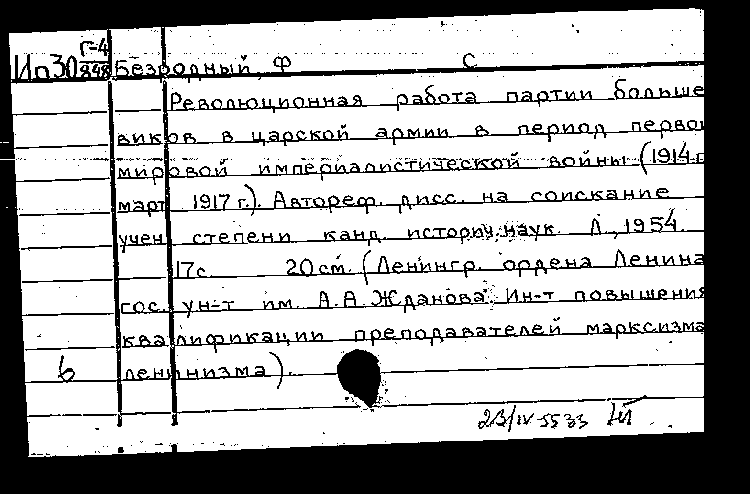 Г-4
Ип30 848 Безродный, Ф С
Революционная работа партии больше
виков в царской армии в период перво
мировой империалистической войны (1914 г
март 1917 г.). Автореф. дисс. на соискание
учен. степени канд. историч. наук. Л., 1954.
17с. 20 см. (Ленингр. ордена Ленина
гос. ун-т им. А. А. Жданова. Ин-т повышения
квалификации преподавателей марксизма
ленинизма).